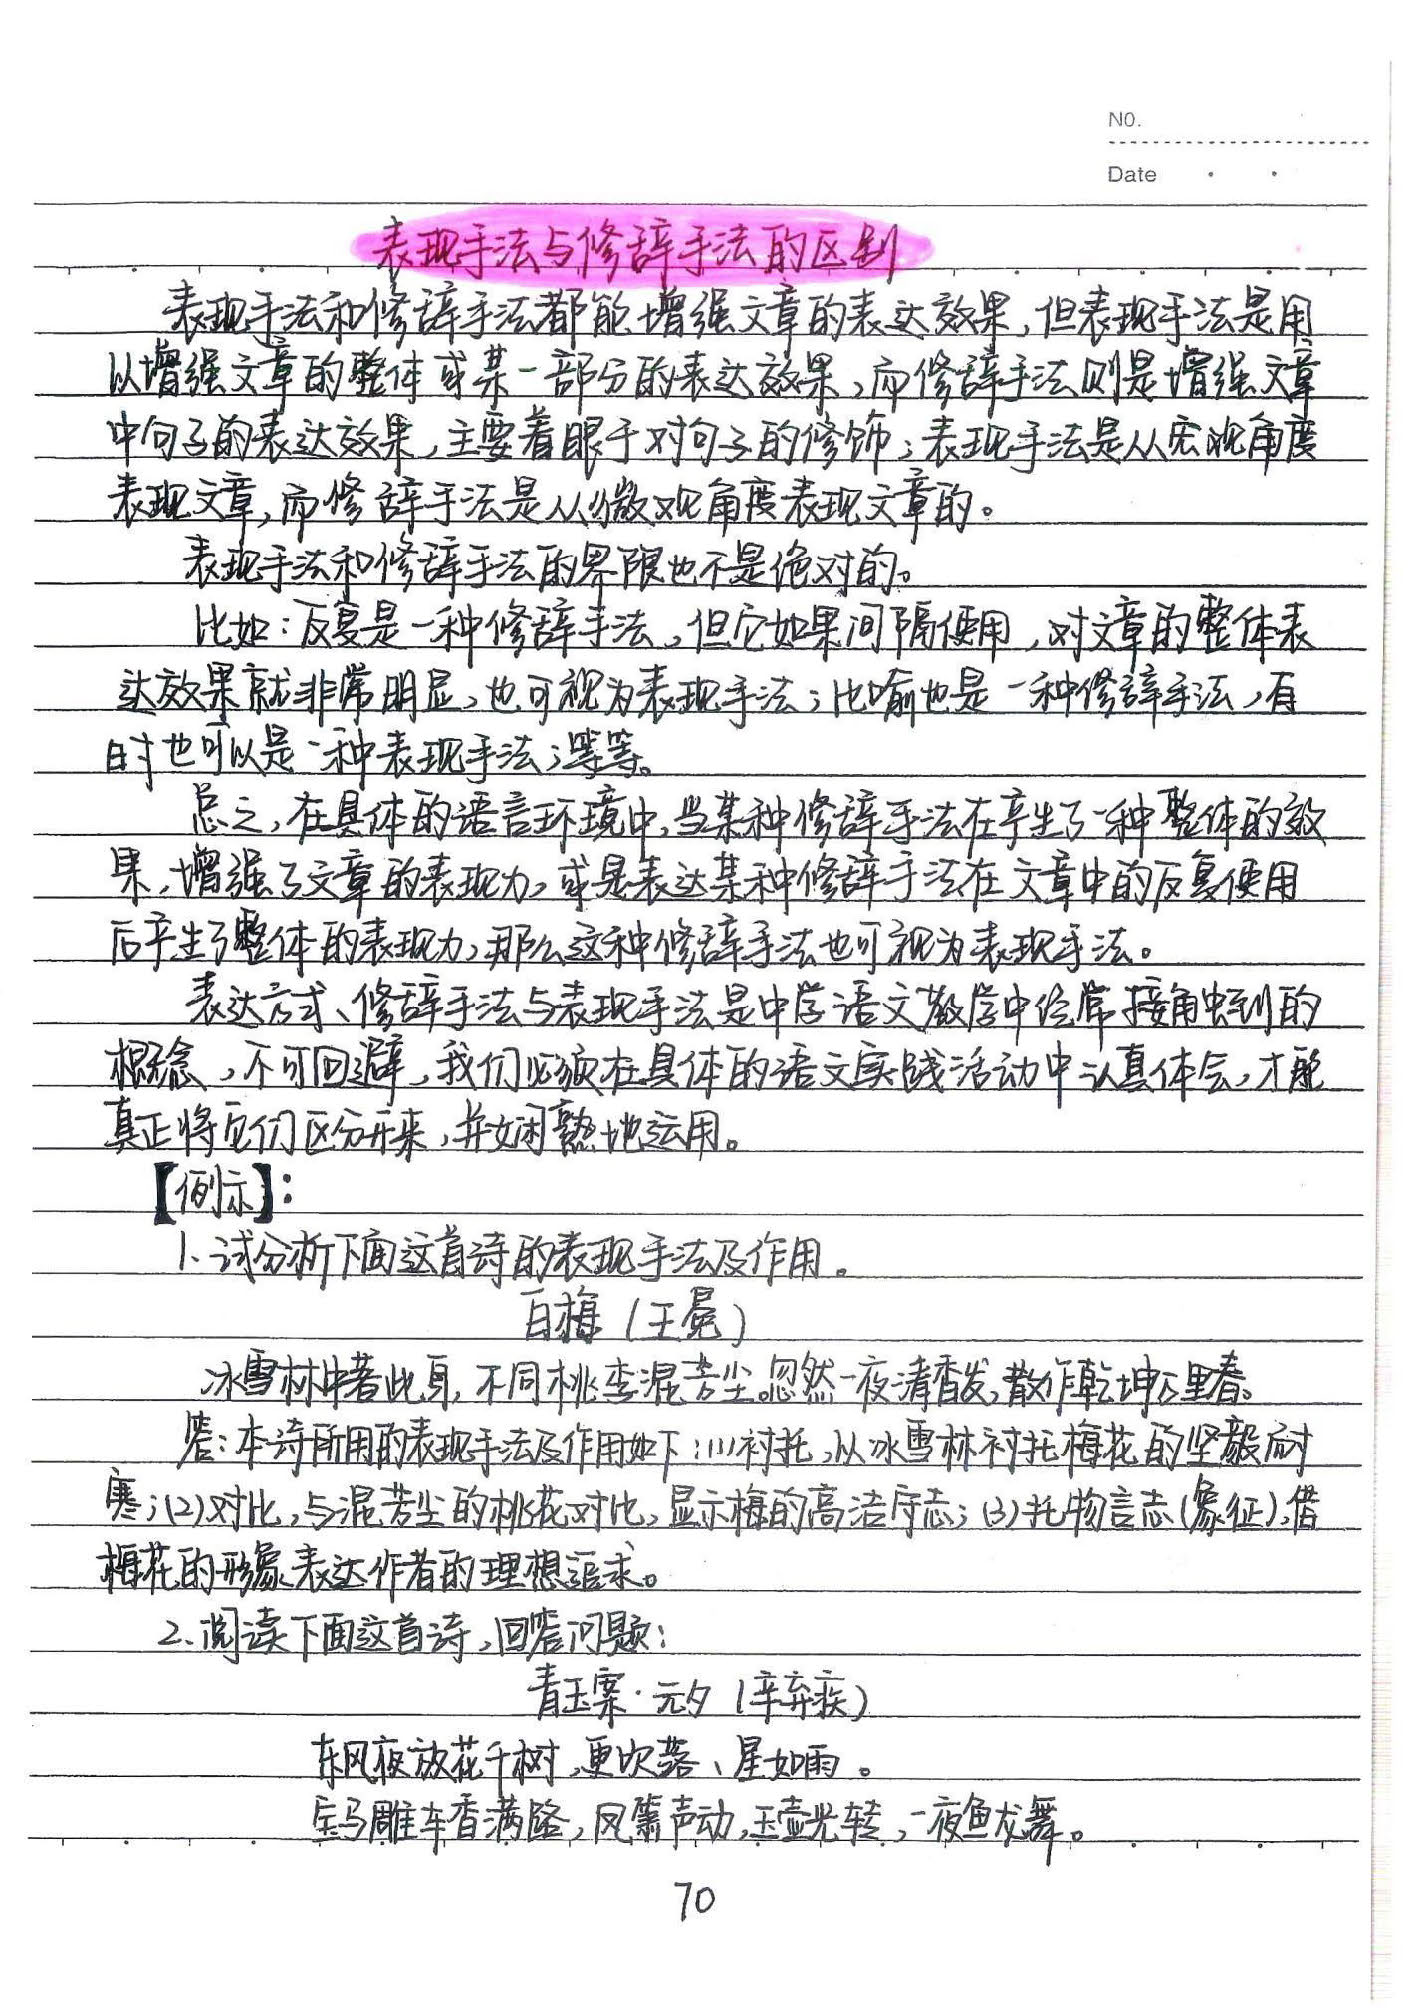 NO.
Date
表现手法与修辞手法的区别
表现手法和修辞手法都能增强文章的表达效果,但表现手法是用
以增强文章的整体或某一部分的表达效果,而修辞手法则是增强文章
中句子的表达效果,主要着眼于对句子的修饰;表现手法是从宏观角度
表现文章,而修辞手法是从微观角度表现文章的。
表现手法和修辞手法的界限也不是绝对的。
比如:反复是一种修辞手法,但它如果间隔使用,对文章的整体表
达效果就非常明显,也可视为表现手法;比喻也是一种修辞手法,有
时也可以是一种表现手法;等等。
总之,在具体的语言环境中,当某种修辞手法在产生了一种整体的效
果,增强了文章的表现力,或是表达某种修辞手法在文章中的反复使用
后产生了整体的表现力,那么这种修辞手法也可视为表现手法。
表达方式、修辞手法与表现手法是中学语文教学中经常接触到的
概念,不可回避,我们必须在具体的语文实践活动中认真体会,才能
真正将它们区分开来,并娴熟地运用。
【例示】:
1、试分析下面这首诗的表现手法及作用。
白梅(王冕)
冰雪林中著此身,不同桃李混芳尘。忽然一夜清香发,散作乾坤万里春。
答:本诗所用的表现手法及作用如下:(1)衬托,从冰雪林衬托梅花的坚毅耐
寒;(2)对比,与混芳尘的桃花对比,显示梅的高洁守志;(3)托物言志(象征),借
梅花的形象表达作者的理想追求。
2、阅读下面这首诗,回答问题:
青玉案·元夕(辛弃疾)
东风夜放花千树,更吹落、星如雨。
宝马雕车香满路,凤箫声动,玉壶光转,一夜鱼龙舞。
70